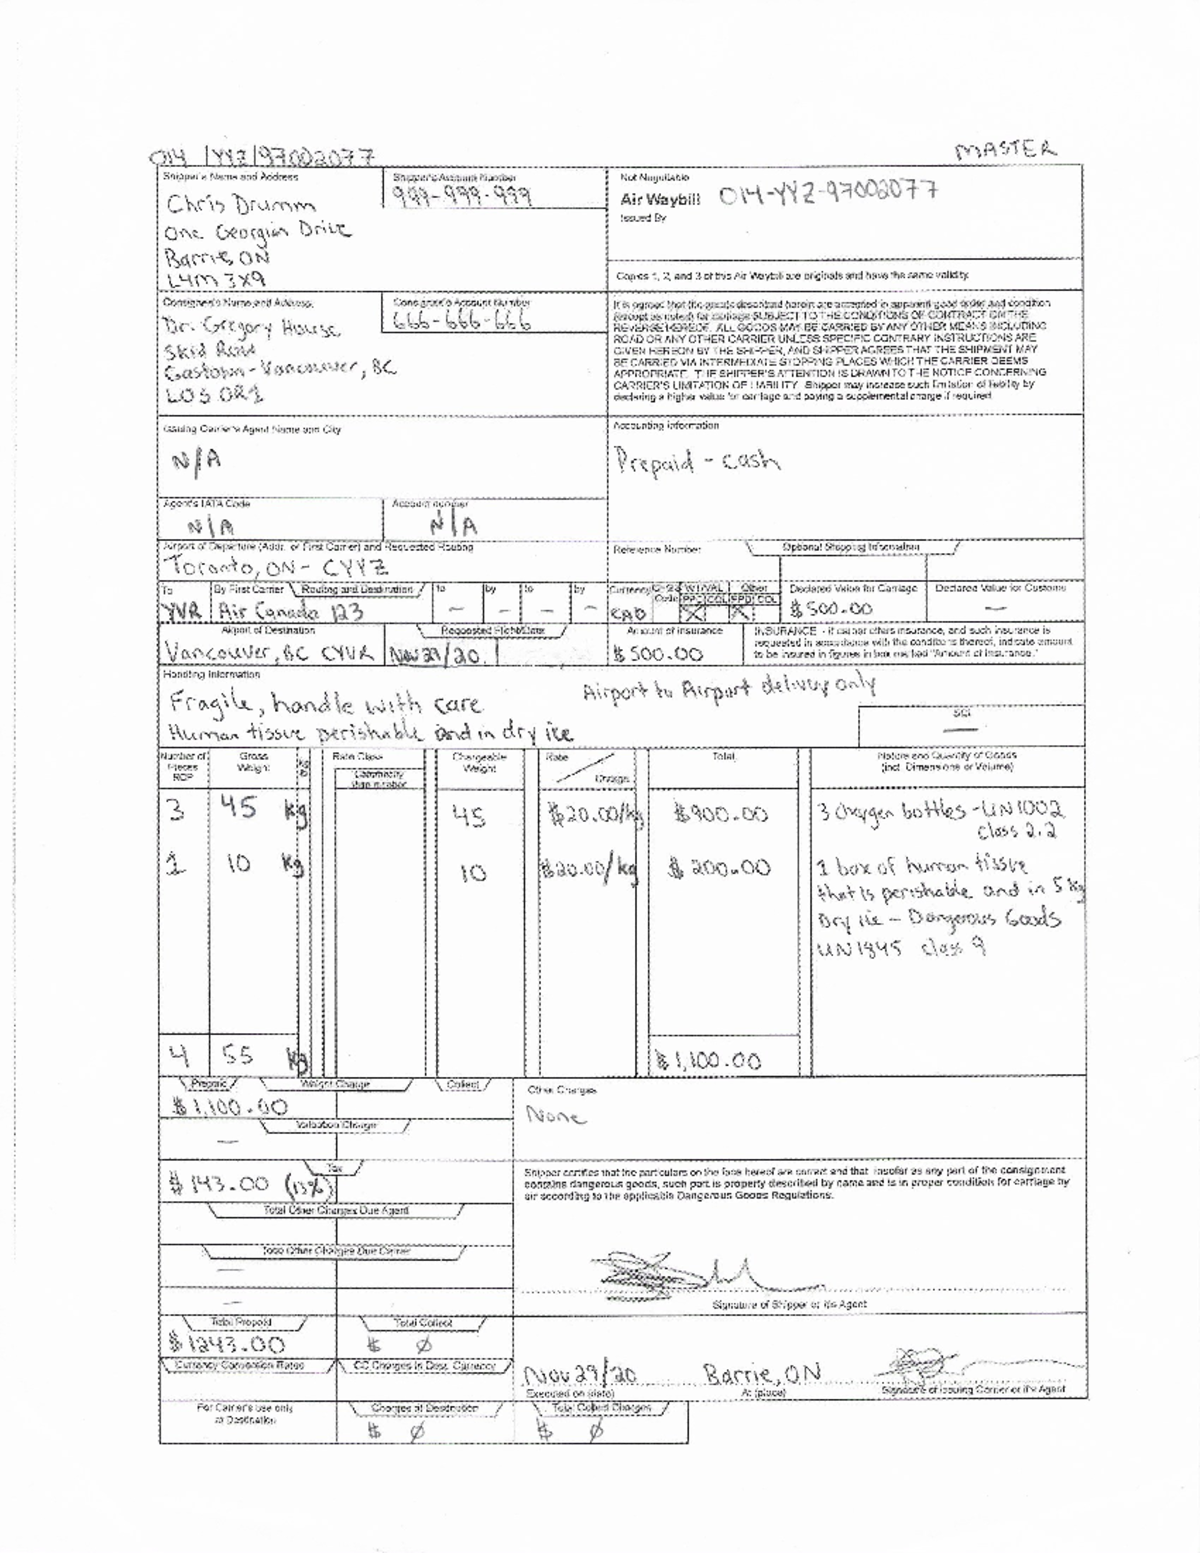 014 |YYZ|97002077
MASTER
Shipper's Name and Address
Chris Drumm
One Georgian Drive
Barrie ON
L4M 3X9
Shipper's Account Number
999-999-999
Not Negotiable
Air Waybill 014-YYZ-97002077
Issued By
Copies 1, 2, and 3 of this Air Waybill are originals and have the same validity.
Consignee's Name and Address
Dr. Gregory House
Skid Row
Gastown-Vancouver, BC
LOS OR1
Consignee's Account Number
666-666-666
It is agreed that the goods described herein are accepted in apparent good order and condition
(except as noted) for carriage SUBJECT TO THE CONDITIONS OF CONTRACT ON THE
REVERSE HEREOF. ALL GOODS MAY BE CARRIED BY ANY OTHER MEANS INCLUDING
ROAD OR ANY OTHER CARRIER UNLESS SPECIFIC CONTRARY INSTRUCTIONS ARE
GIVEN HEREON BY THE SHIPPER, AND SHIPPER AGREES THAT THE SHIPMENT MAY
BE CARRIED VIA INTERMEDIATE STOPPING PLACES WHICH THE CARRIER DEEMS
APPROPRIATE. THE SHIPPER'S ATTENTION IS DRAWN TO THE NOTICE CONCERNING
CARRIER'S LIMITATION OF LIABILITY. Shipper may increase such limitation of liability by
declaring a higher value for carriage and paying a supplemental charge if required.
Issuing Carrier's Agent Name and City
N/A
Accounting Information
Prepaid - cash
Agent's IATA Code
N/A
Account number
N/A
Airport of Departure (Addr. of First Carrier) and Requested Routing
Toronto, ON - CYYZ
Reference Number
Optional Shipping Information
To
YVR
By First Carrier
Air Canada 123
Routing and Destination
to
—
by
—
to
—
by
—
Currency
CAD
Code
WT/VAL
PPD COL
X
Other
PPD COL
X
Declared Value for Carriage
$500.00
Declared Value for Customs
—
Airport of Destination
Vancouver, BC CYVR
Requested Flight/Date
Nov 29/20
Amount of Insurance
$500.00
INSURANCE - if carrier offers insurance, and such insurance is
requested in accordance with the conditions thereof, indicate amount
to be insured in figures in box marked "Amount of Insurance."
Handling Information
Airport to Airport delivery only
Fragile, handle with care
Human tissue perishable and in dry ice
SCI
—
Number of Pieces RCP
Gross Weight
Rate Class
Commodity Item number
Chargeable Weight
Rate / Charge
Total
Nature and Quantity of Goods (incl. Dimensions or Volume)
3 45 kg 45 $20.00/kg $900.00 3 Oxygen bottles - UN1002
class 2.2
1 10 kg 10 $20.00/kg $200.00 1 box of human tissue
that is perishable and in 5 kg
Dry ice - Dangerous Goods
UN1845 class 9
4 55 kg $1,100.00
Prepaid
Weight Charge
Collect
$1,100.00
Other Charges
None
Valuation Charge
—
Tax
$143.00 (13%)
Total Other Charges Due Agent
Total Other Charges Due Carrier
—
—
Shipper certifies that the particulars on the face hereof are correct and that insofar as any part of the consignment
contains dangerous goods, such part is properly described by name and is in proper condition for carriage by
air according to the applicable Dangerous Goods Regulations.
Signature of Shipper or its Agent
Total Prepaid
$1243.00
Total Collect
$ 0
Currency Conversion Rates
CC Charges in Dest. Currency
Nov 29/20
Barrie, ON
Executed on (date)
At (place)
Signature of Issuing Carrier or its Agent
For Carrier's use only
at Destination
Charges at Destination
$ 0
Total Collect Charges
$ 0